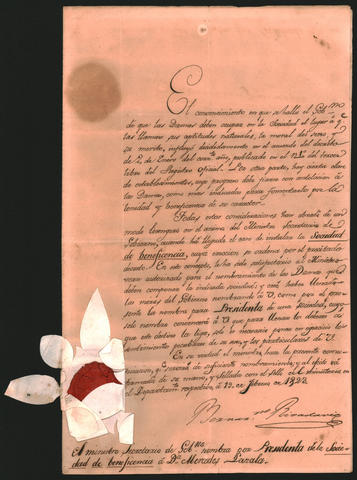 El convencimiento en que se halla el Gob.no
de que las Damas deben ocupar en la Sociedad el lugar á q.e
las llaman sus aptitudes naturales, la moral del sexo, y
su merito, influyó decididamente en el acuerdo del decreto
de 2 de Enero del cor.te año, publicado en el N.º 1.º del tercer
libro del Registro Oficial. De otra parte, hay cierta clase
de establecimientos, cuyo programa debe fiarse con antelacion á
las Damas, como mas indicadas para fomentarlos por la
bondad y beneficencia de su caracter.
Todas estas consideraciones han obrado de un
modo en el animo del Ministro Secretario de
Gobierno, cuando ha llegado el caso de instalar la Sociedad
de beneficencia, cuya ereccion se ordena por el precitado
decreto. En este concepto, le ha sido satisfactorio al Ministro
verse autorizado para el nombramiento de las Damas que
deben componer la indicada sociedad; y cree haber
las miras del Gobierno nombrando á V. como por el pre-
sente la nombra para Presidenta de una sociedad, cuyo
solo nombre convencerá á V. que para llenar los deberes de
que este destino la liga, solo le es necesario poner en egercicio los
sentimientos de su sexo, y los particulares de V.
En su virtud el ministro hace la presente comu-
nicacion, y servirá de suficiente nombramiento; á cuyo efecto vá
firmada de su mano, y sellada con el sello del
el Departamento respectivo, á 15 de Febrero de 1823
Bernar.no Rivadavia
El ministro Secretario de Gob.no nombra por Presidenta de la Socie-
dad de beneficencia á D.a Mercedes Lasala.